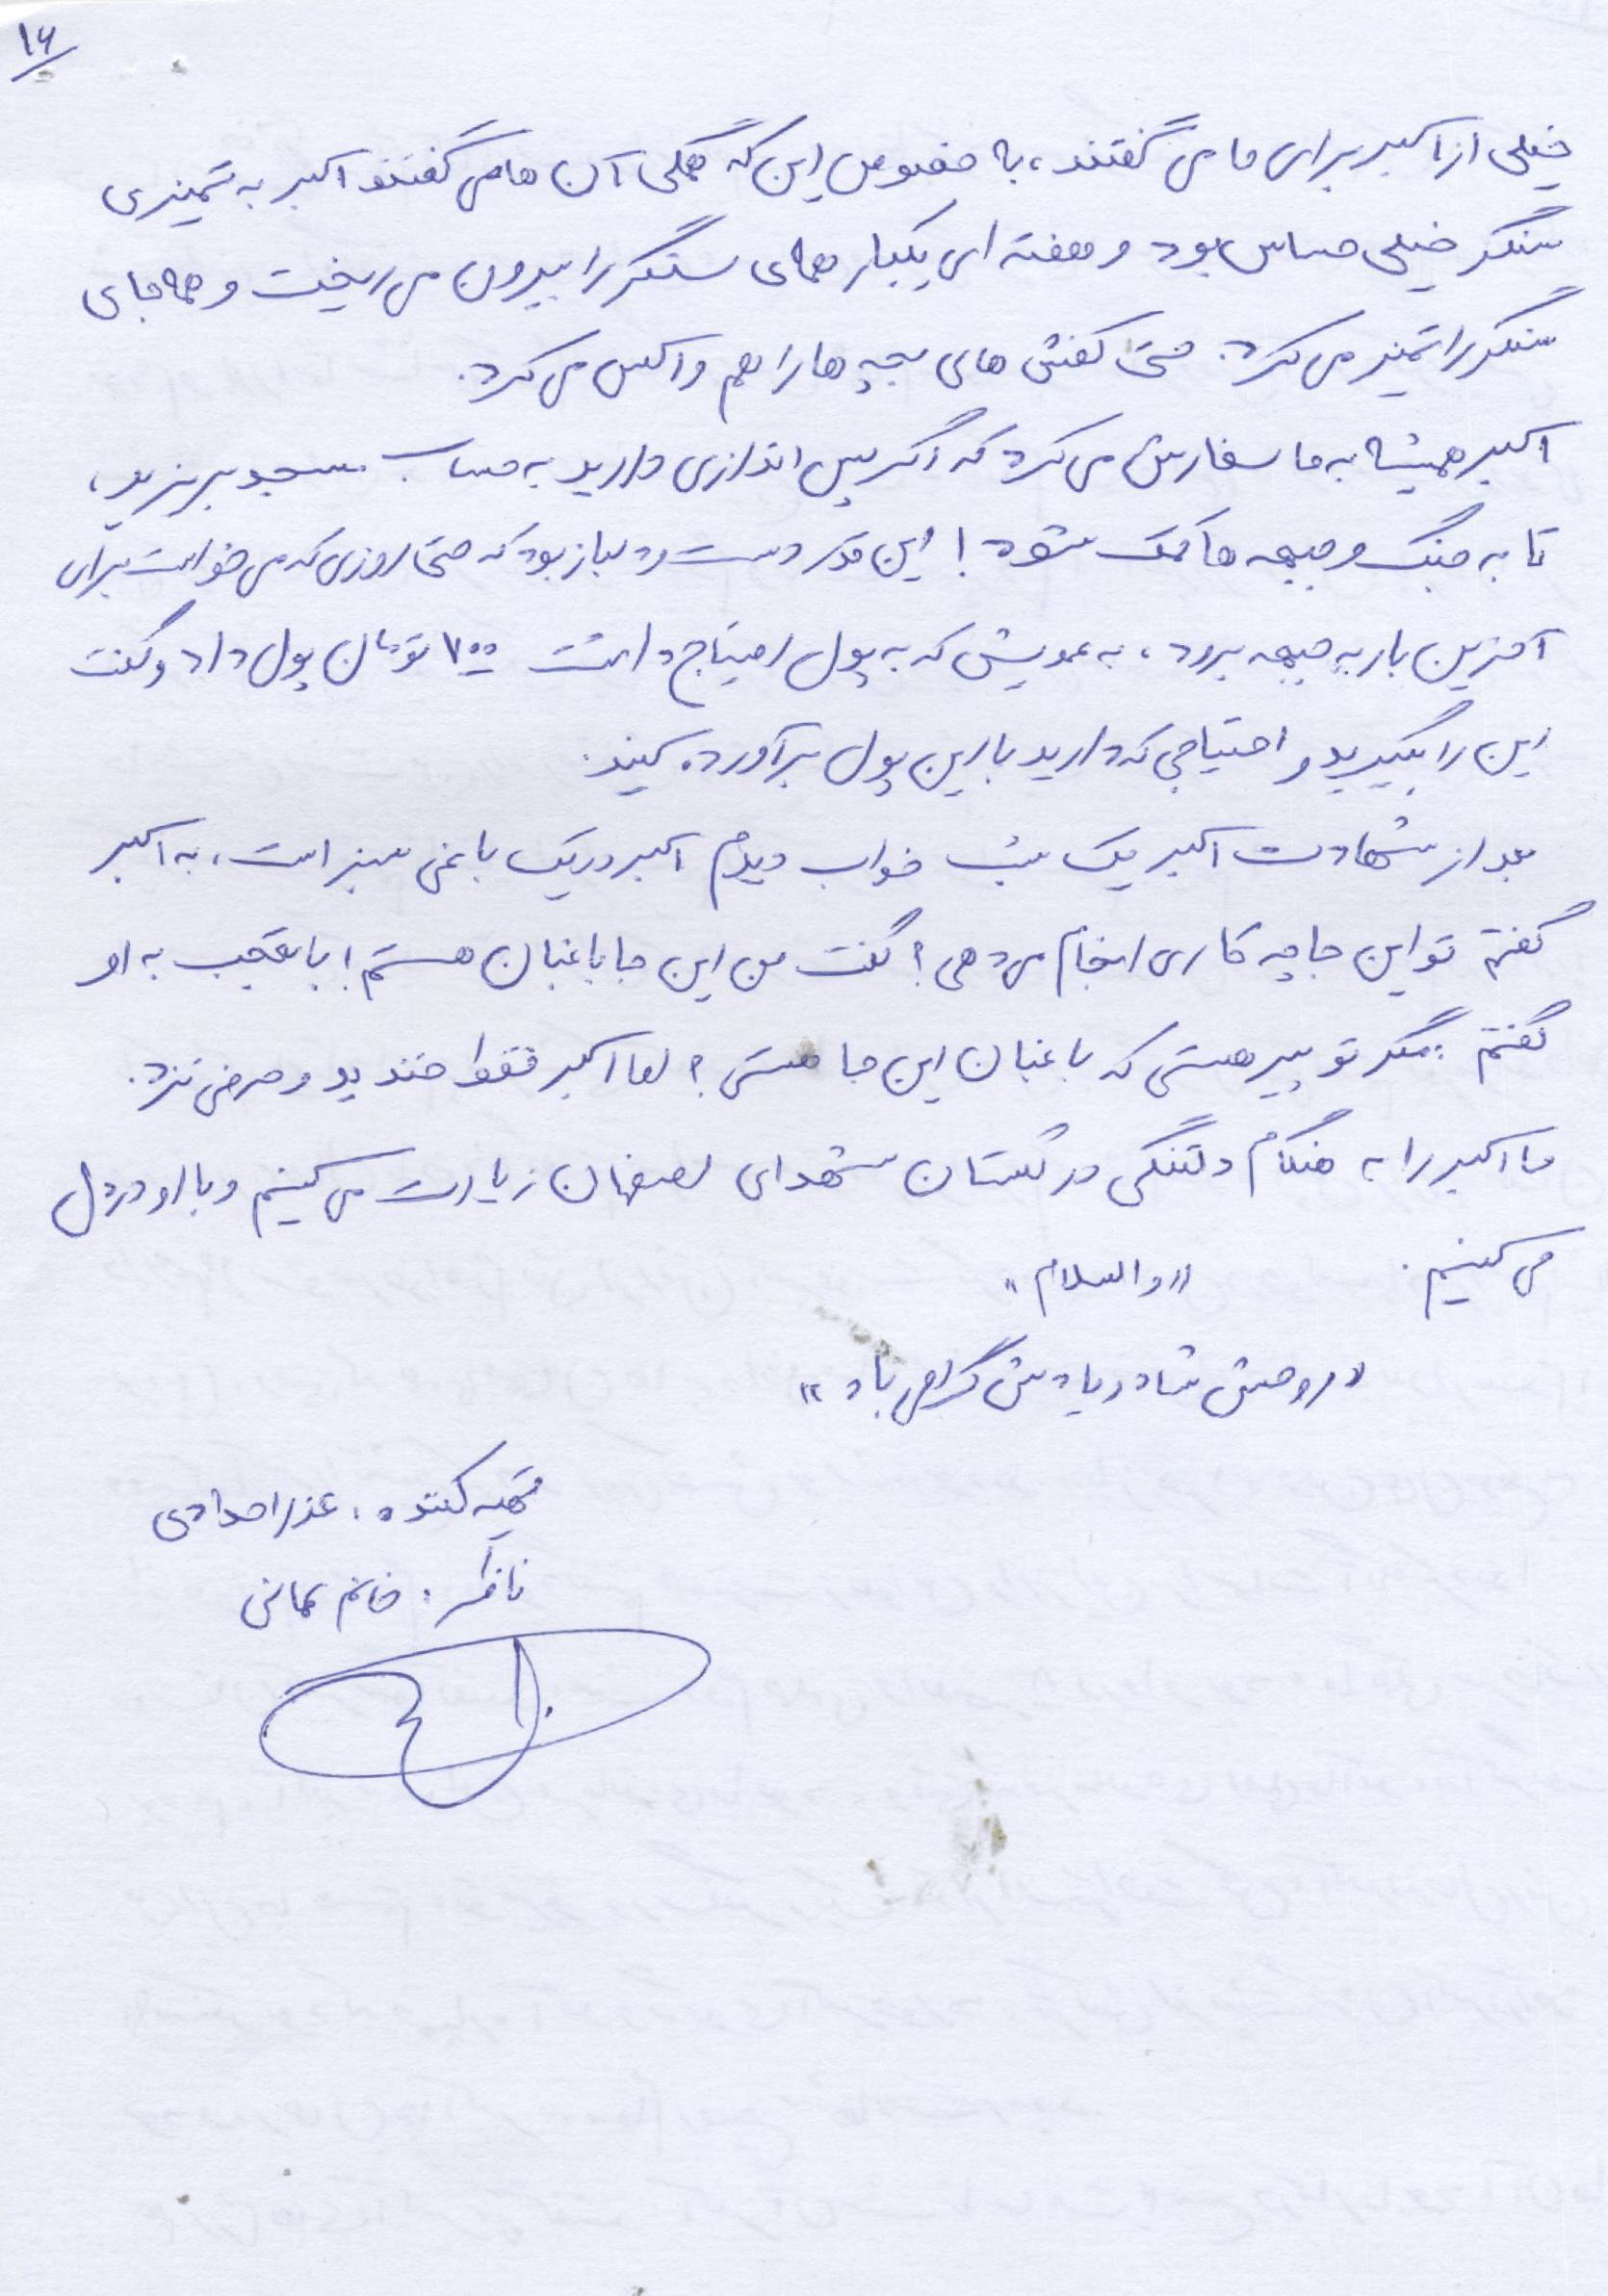 ۱۶
خیلی از اکبر برای ما می گفتند، به خصوص این که همگی آن ها می گفتند اکبر به تمیزی
سنگر خیلی حساس بود و هفته ای یکبار همه ی سنگر را بیرون می ریخت و همه جای
سنگر را تمیز می کرد. حتی کفش های بچه ها را هم واکس می کرد.
اکبر همیشه به ما سفارش می کرد که اگر پس اندازی دارید به حساب مسجد بریزید،
تا به جنگ و جبهه ها کمک شود! این قدر دست و دلباز بود که حتی روزی که می خواست برای
آخرین بار به جبهه برود، به عمویش که به پول احتیاج داشت ۷۰۰ تومان پول داد و گفت
این را بگیرید و احتیاجی که دارید با این پول برآورده کنید.
بعد از شهادت اکبر یک شب خواب دیدم اکبر در یک باغی سبز است، به اکبر
گفتم تو این جا چه کاری انجام می دهی؟ گفت من این جا باغبان هستم! با تعجب به او
گفتم: مگر تو پیر هستی که باغبان این جا هستی؟ اما اکبر فقط خندید و حرفی نزد.
ما اکبر را به هنگام دلتنگی در گلستان شهدای اصفهان زیارت می کنیم و با او درد دل
می کنیم. «والسلام»
«روحش شاد و یادش گرامی باد»
تهیه کننده: عذرا حدادی
ناظر: خانم